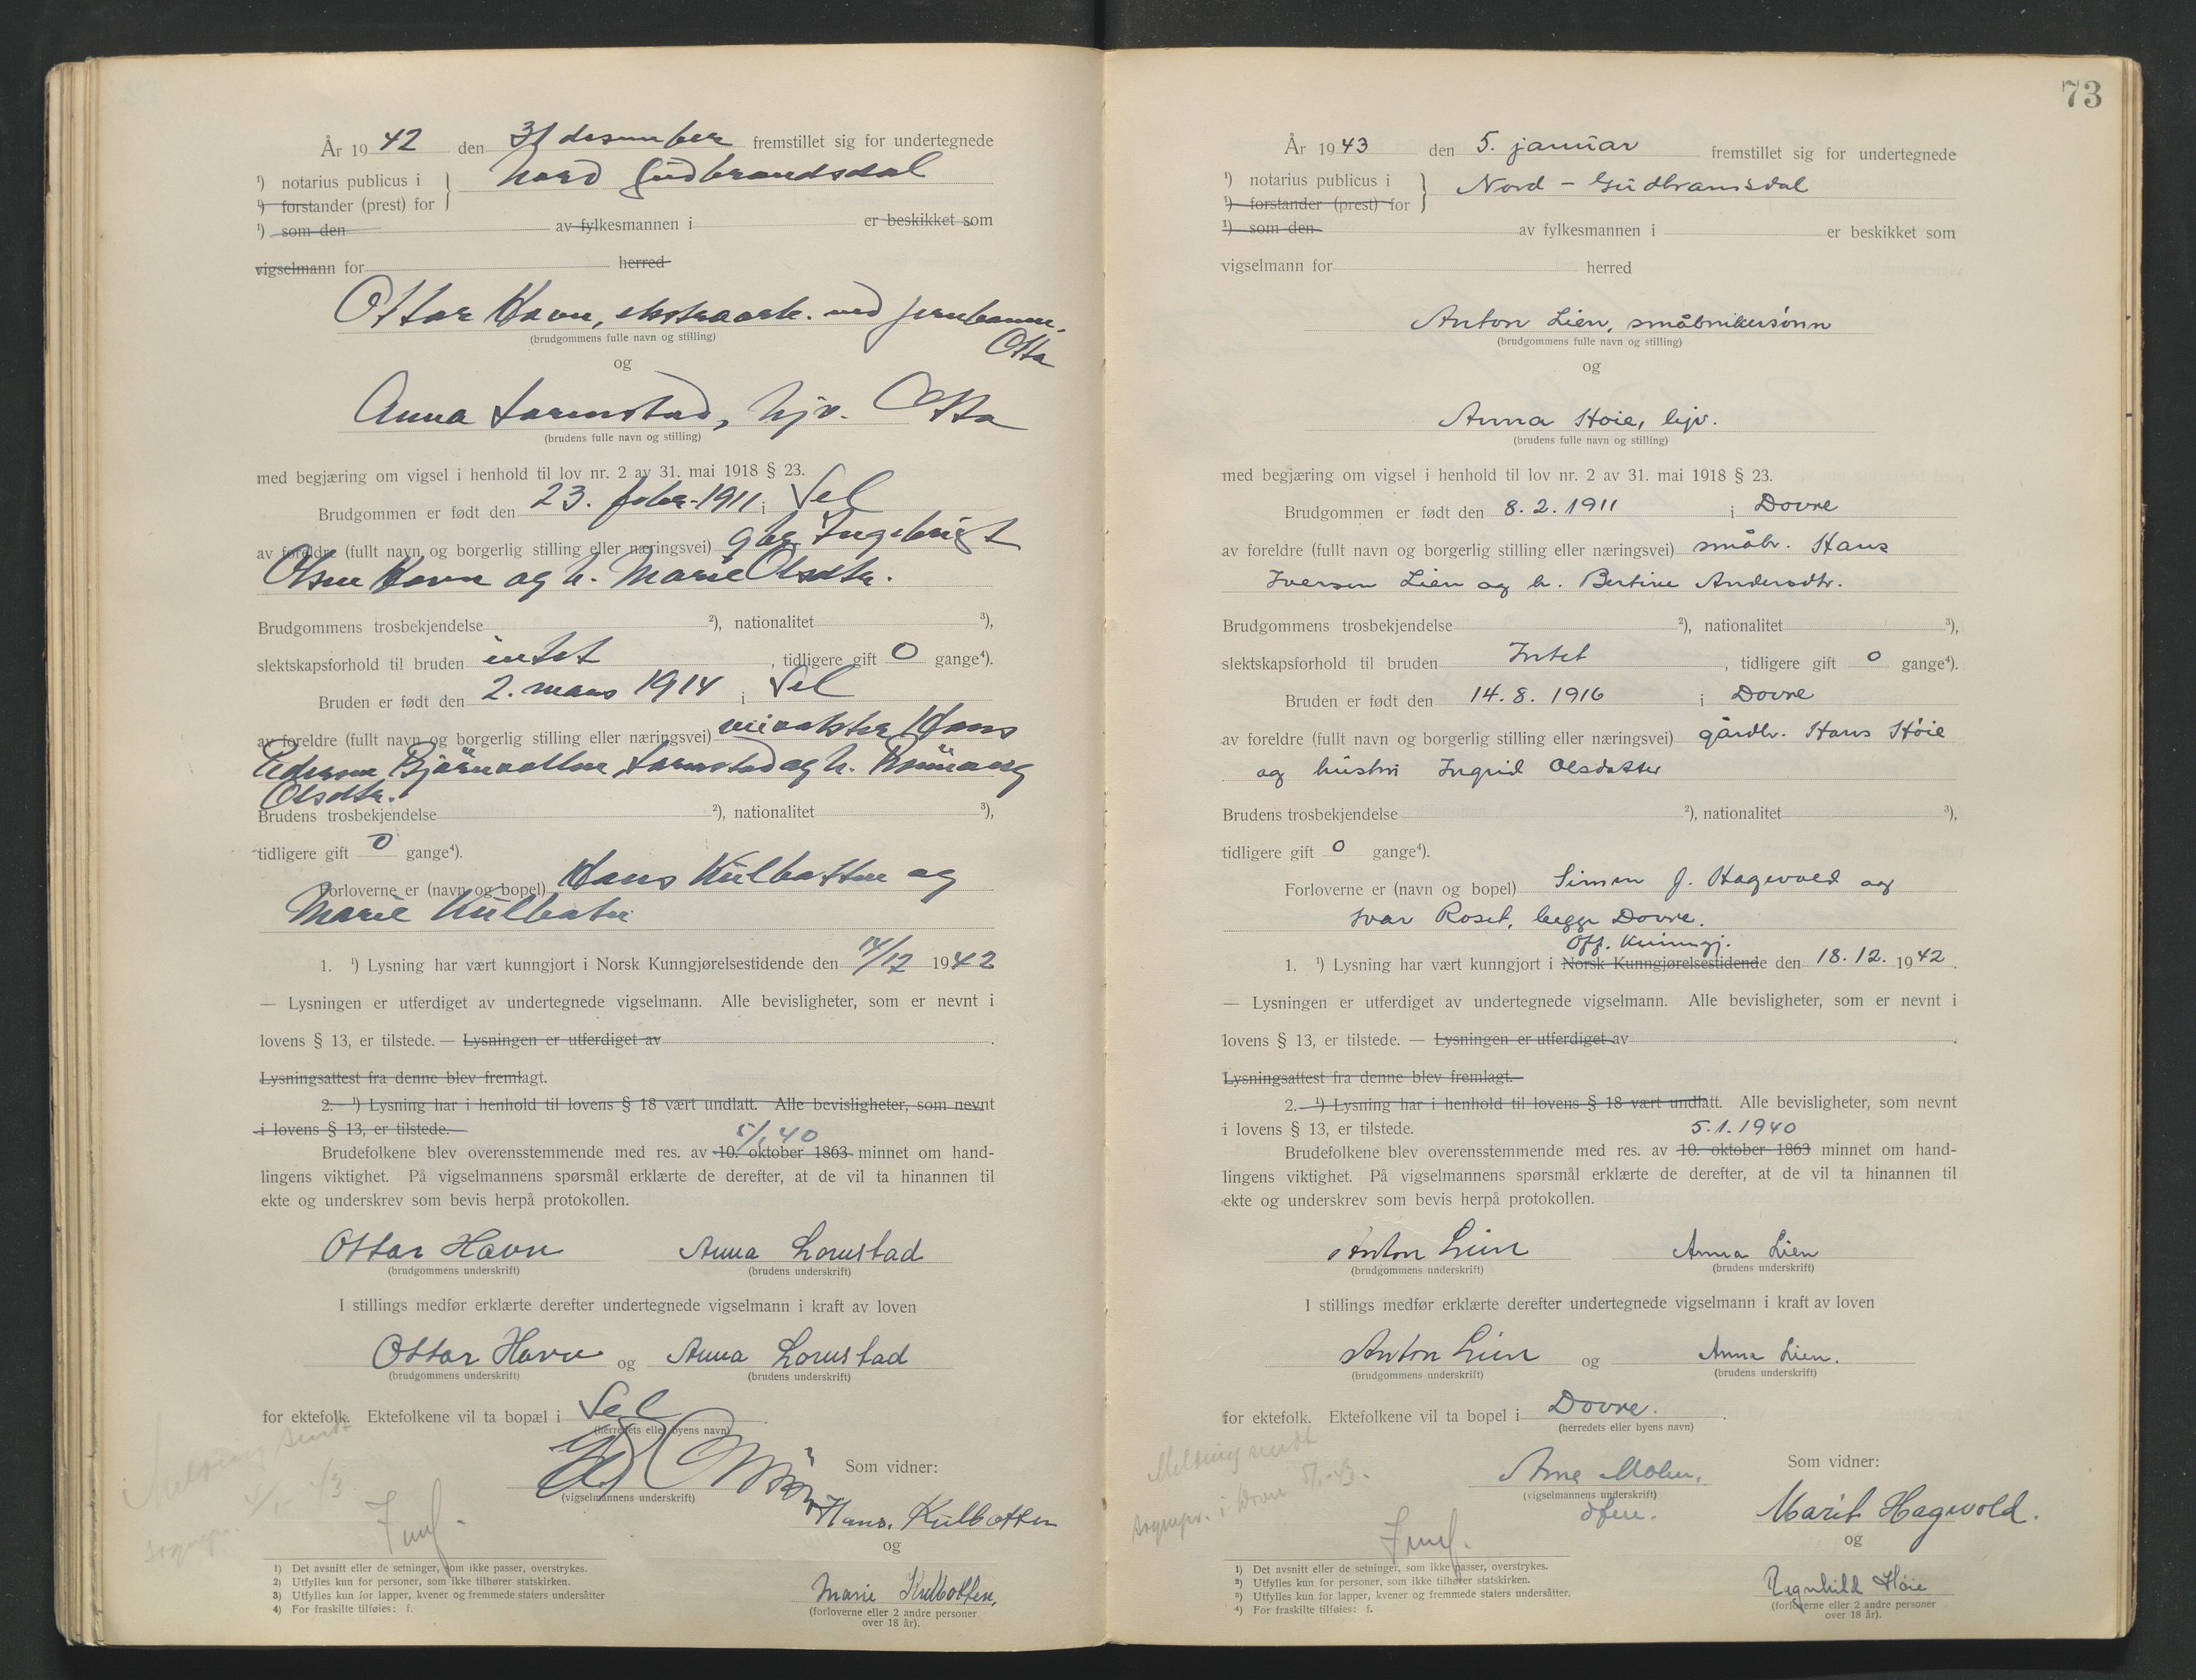 År 19 42 den 31 desember fremstillet sig for undertegnede
¹) notarius publicus i } Nord Gudbrandsdal
¹) forstander (prest) for
¹) som den av fylkesmannen i er beskikket som
vigselmann for herred
Ottar Havn, ekstraarb. ved jernbanen,
Otta
(brudgommens fulle navn og stilling)
og
Anna Lornstad, hjv. Otta
(brudens fulle navn og stilling)
med begjæring om vigsel i henhold til lov nr. 2 av 31. mai 1918 § 23.
Brudgommen er født den 23. febr. 1911 i Sel
av foreldre (fullt navn og borgerlig stilling eller næringsvei) gbr Ingebrigt
Olsen Havn og h. Marie Olsdtr.
Brudgommens trosbekjendelse ²), nationalitet ³),
slektskapsforhold til bruden intet, tidligere gift 0 gange⁴).
Bruden er født den 2. mars 1914 i Sel
av foreldre (fullt navn og borgerlig stilling eller næringsvei) veivokter Hans
Pederson Lornstad og h. Rønnaug
Olsdtr.
Brudens trosbekjendelse ²), nationalitet ³),
tidligere gift 0 gange⁴).
Forloverne er (navn og bopel) Hans Kulbotten og
Marie Kulbotten
1. ¹) Lysning har vært kunngjort i Norsk Kunngjørelsestidende den 14/12 1942
— Lysningen er utferdiget av undertegnede vigselmann. Alle bevisligheter, som er nevnt i
lovens § 13, er tilstede. — Lysningen er utferdiget av .
Lysningsattest fra denne blev fremlagt.
2. ¹) Lysning har i henhold til lovens § 18 vært undlatt. Alle bevisligheter, som nevnt
i lovens § 13, er tilstede.
5/1 40
Brudefolkene blev overensstemmende med res. av 10. oktober 1863 minnet om hand-
lingens viktighet. På vigselmannens spørsmål erklærte de derefter, at de vil ta hinannen til
ekte og underskrev som bevis herpå protokollen.
Ottar Havn Anna Lornstad
(brudgommens underskrift) (brudens underskrift)
I stillings medfør erklærte derefter undertegnede vigselmann i kraft av loven
Ottar Havn og Anna Lornstad
(brudgommens underskrift) (brudens underskrift)
for ektefolk. Ektefolkene vil ta bopæl i Sel .
(herredets eller byens navn)
Melding sendt
sognepr. 4/1-43.
Som vidner:
(vigselmannens underskrift)
Hans. Kulbotten
og
Jmf.
Marie Kulbotten,
(forloverne eller 2 andre personer
over 18 år).
1) Det avsnitt eller de setninger, som ikke passer, overstrykes.
2) Utfylles kun for personer, som ikke tilhører statskirken.
3) Utfylles kun for lapper, kvener og fremmede staters undersåtter
4) For fraskilte tilføies: f.
73
År 19 43 den 5. januar fremstillet sig for undertegnede
¹) notarius publicus i } Nord - Gudbrandsdal
¹) forstander (prest) for
¹) som den av fylkesmannen i er beskikket som
vigselmann for herred
Anton Lien, småbrukersønn
(brudgommens fulle navn og stilling)
og
Anna Høie, hjv.
(brudens fulle navn og stilling)
med begjæring om vigsel i henhold til lov nr. 2 av 31. mai 1918 § 23.
Brudgommen er født den 8. 2. 1911 i Dovre
av foreldre (fullt navn og borgerlig stilling eller næringsvei) småbr. Hans
Iversen Lien og h. Bertine Andersdtr.
Brudgommens trosbekjendelse ²), nationalitet ³),
slektskapsforhold til bruden Intet, tidligere gift 0 gange⁴).
Bruden er født den 14. 8. 1916 i Dovre
av foreldre (fullt navn og borgerlig stilling eller næringsvei) gårdbr. Hans Høie
og hustru Ingrid Olsdatter
Brudens trosbekjendelse ²), nationalitet ³),
tidligere gift 0 gange⁴).
Forloverne er (navn og bopel) Simen J. Hagevold og
Ivar Roset, begge Dovre.
Off. Kunngj.
1. ¹) Lysning har vært kunngjort i Norsk Kunngjørelsestidende den 18. 12. 1942.
— Lysningen er utferdiget av undertegnede vigselmann. Alle bevisligheter, som er nevnt i
lovens § 13, er tilstede. — Lysningen er utferdiget av .
Lysningsattest fra denne blev fremlagt.
2. ¹) Lysning har i henhold til lovens § 18 vært undlatt. Alle bevisligheter, som nevnt
i lovens § 13, er tilstede.
5.1.1940
Brudefolkene blev overensstemmende med res. av 10. oktober 1863 minnet om hand-
lingens viktighet. På vigselmannens spørsmål erklærte de derefter, at de vil ta hinannen til
ekte og underskrev som bevis herpå protokollen.
Anton Lien Anna Lien
(brudgommens underskrift) (brudens underskrift)
I stillings medfør erklærte derefter undertegnede vigselmann i kraft av loven
Anton Lien og Anna Lien.
(brudgommens underskrift) (brudens underskrift)
for ektefolk. Ektefolkene vil ta bopel i Dovre. .
(herredets eller byens navn)
Melding sendt
sognepr. i Dovre 5/1-43.
Som vidner:
Arne Molen.
(vigselmannens underskrift)
dfm.
Marit Hagevold.
og
Jmf.
Ragnhild Høie
(forloverne eller 2 andre personer
over 18 år).
1) Det avsnitt eller de setninger, som ikke passer, overstrykes.
2) Utfylles kun for personer, som ikke tilhører statskirken.
3) Utfylles kun for lapper, kvener og fremmede staters undersåtter.
4) For fraskilte tilføies: f.